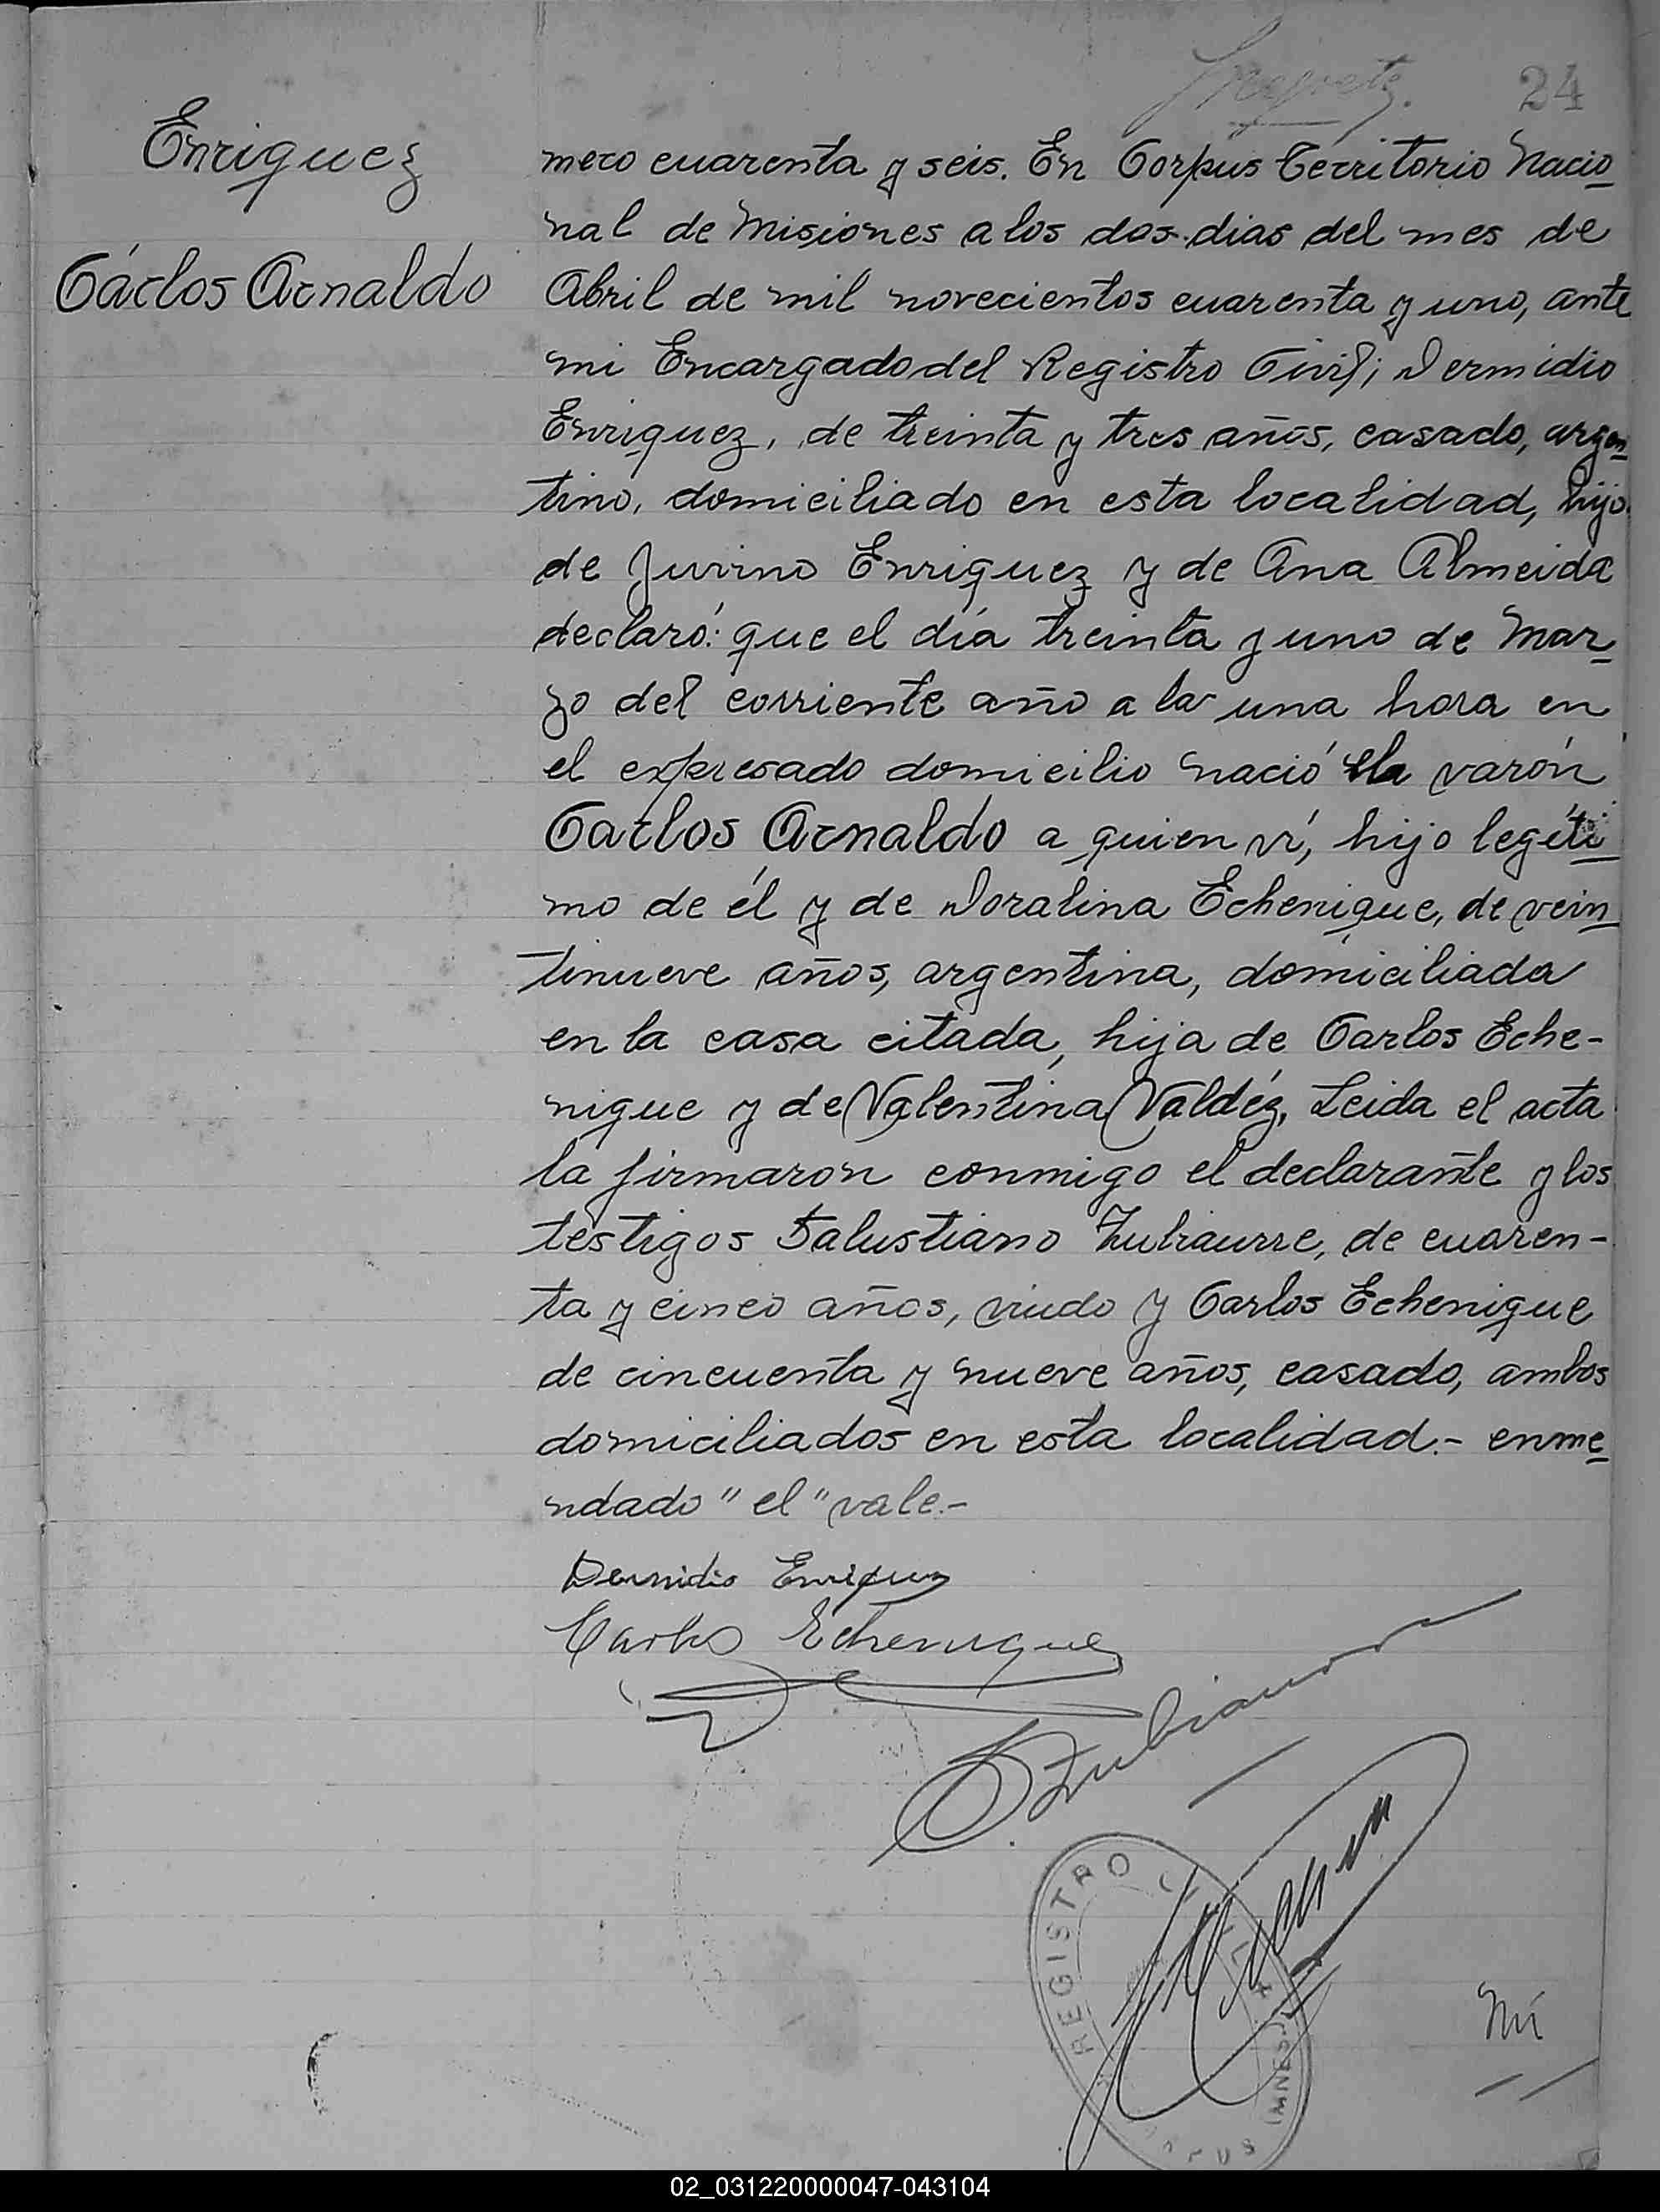 24
Enriquez
Cárlos Arnaldo
mero cuarenta y seis. En Corpus Territorio Nacio
nal de Misiones a los dos dias del mes de
Abril de mil novecientos cuarenta y uno, ante
mi Encargado del Registro Civil; Dermidio
Enriquez, de treinta y tres años, casado, argen
tino, domiciliado en esta localidad, hijo
de Juvino Enriquez y de Ana Almeida
declaró: que el día treinta y uno de Mar
zo del corriente año a la una hora en
el expresado domicilio nació el varón
Carlos Arnaldo a quien ví, hijo legíti
mo de él y de Doralina Echenique, de vein
tinueve años, argentina, domiciliada
en la casa citada, hija de Carlos Eche-
nique y de Valentina Valdéz, Leida el acta
la firmaron conmigo el declarante y los
testigos Salustiano Zubiaurre, de cuaren-
ta y cinco años, viudo y Carlos Echenique
de cincuenta y nueve años, casado, ambos
domiciliados en esta localidad.- enme
ndado "el" vale.-
Dermidio Enriquez
Carlos Echenique
S Zubiaurre
REGISTRO CIVIL
Nú
02_031220000047-043104